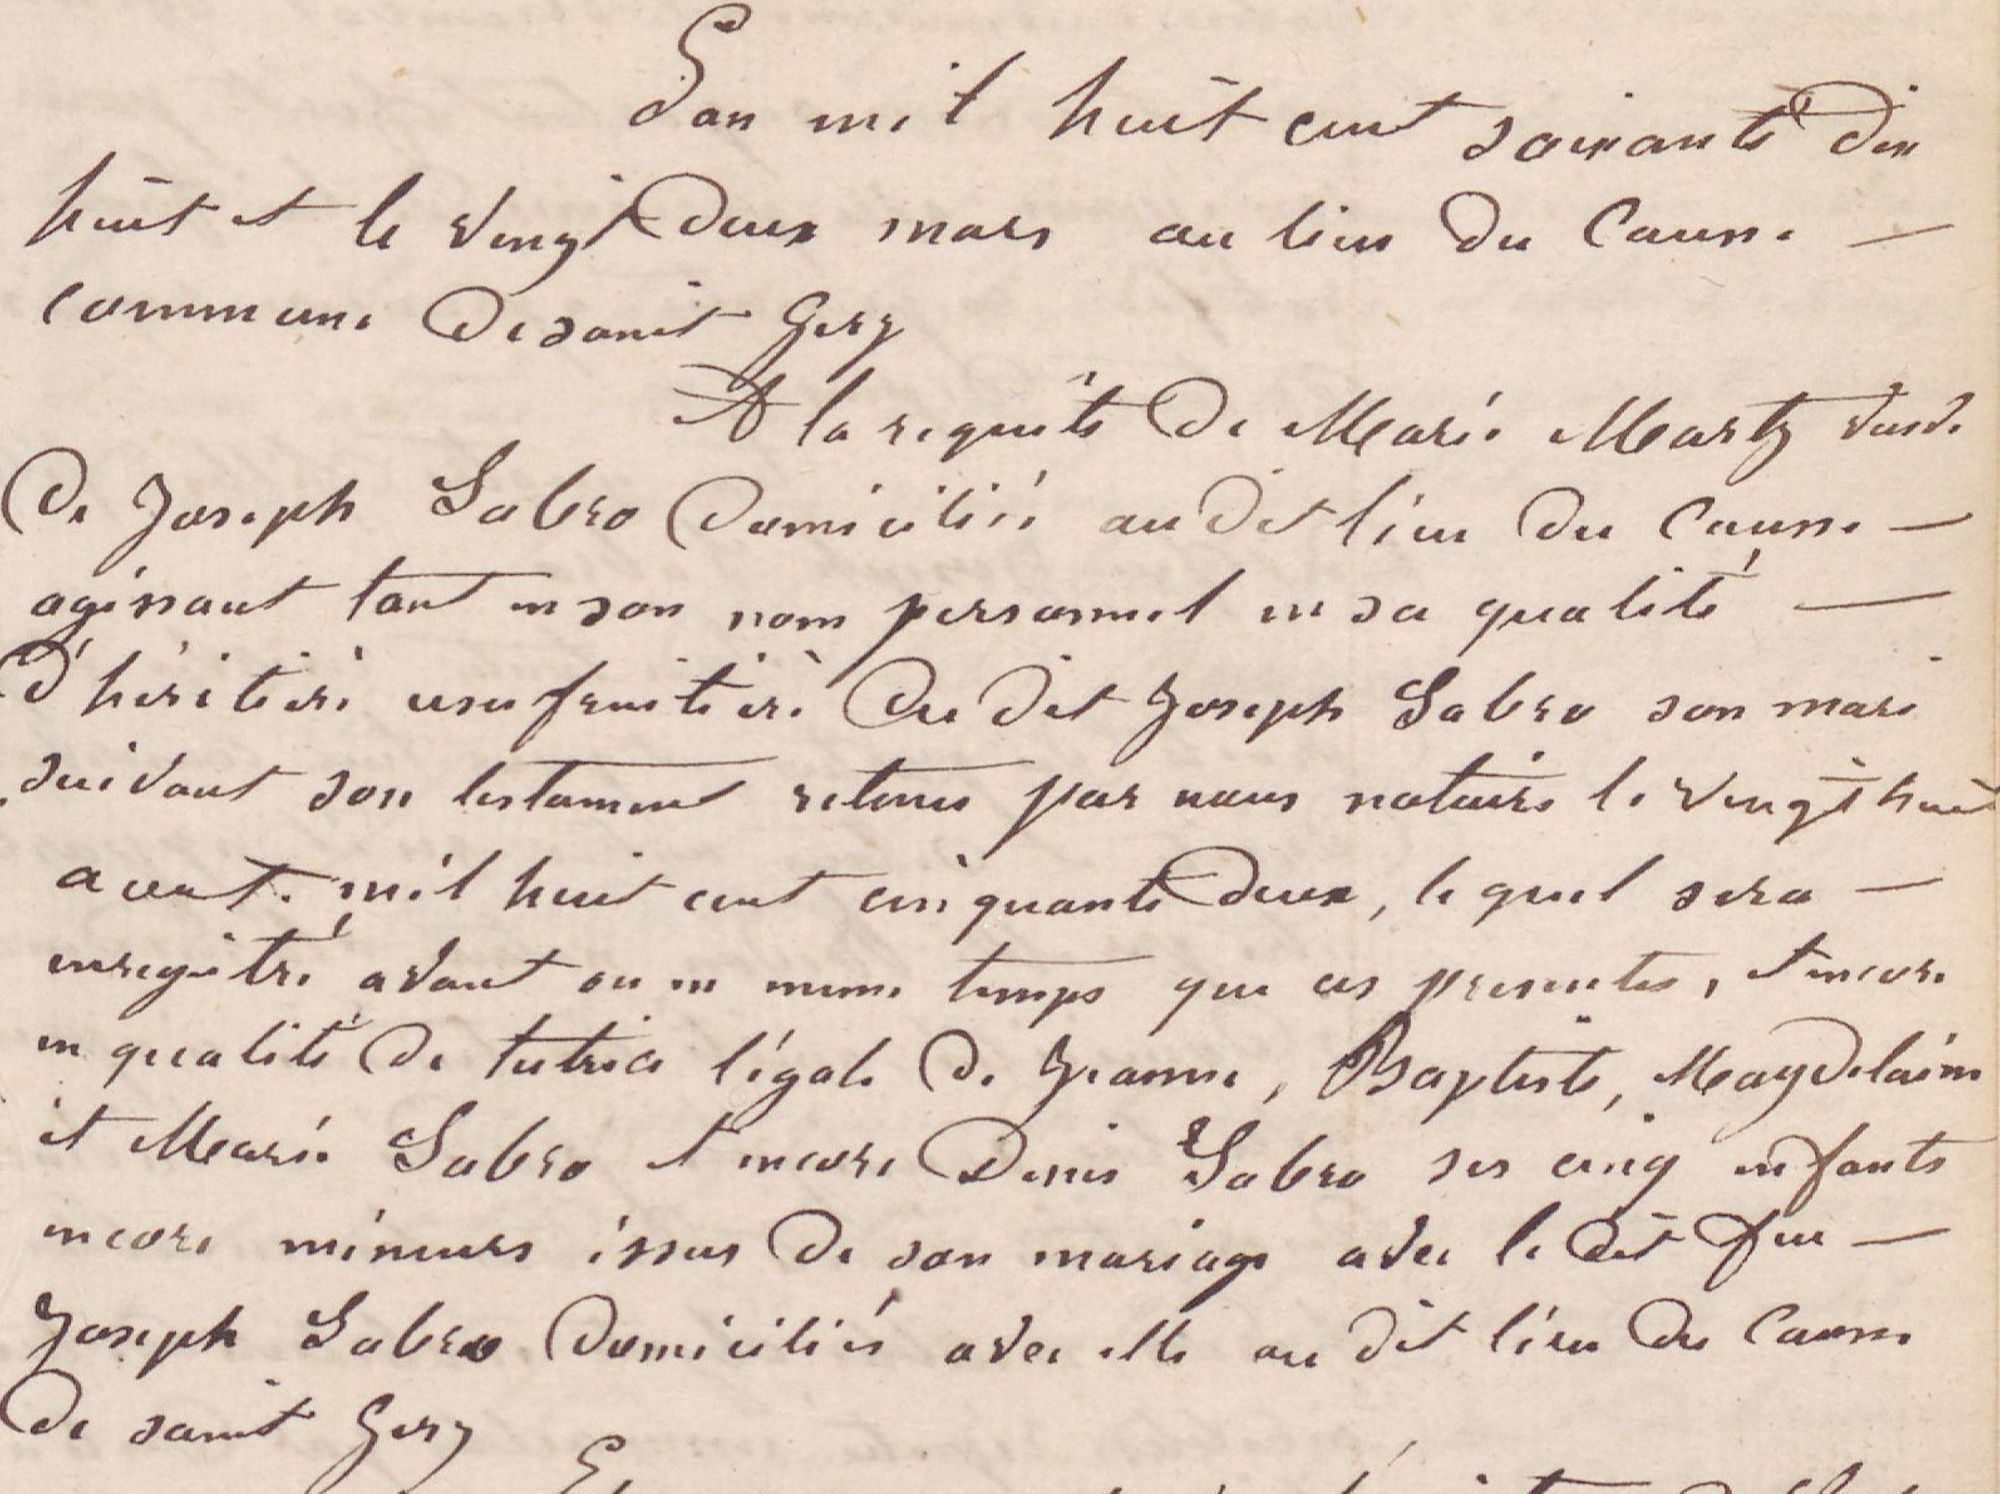 L'an mil huit cent soixante dix
huit et le vingt deux mars au lieu du Causse —
commune de saint Gery
A la requête de Marie Marty veuve
de Joseph Sabro domiciliée au dit lieu du Causse —
agissant tant en son nom personnel en sa qualité —
d'héritière usufruitière du dit Joseph Sabro son mari
suivant son testament retenu par nous notaire le vingt huit
aout mil huit cent cinquante deux, le quel sera —
enregitré avant ou en meme temps que ces presentes, et encore
en qualité de tutrice légale de Jeanne, Baptiste, Magdelaine
et Marie Sabro et encore Denis Sabro ses cinq enfants
encore mineurs issus de son mariage avec le dit feu —
Joseph Sabro domiciliés avec elle au dit lieu du Causse
de saint Gery